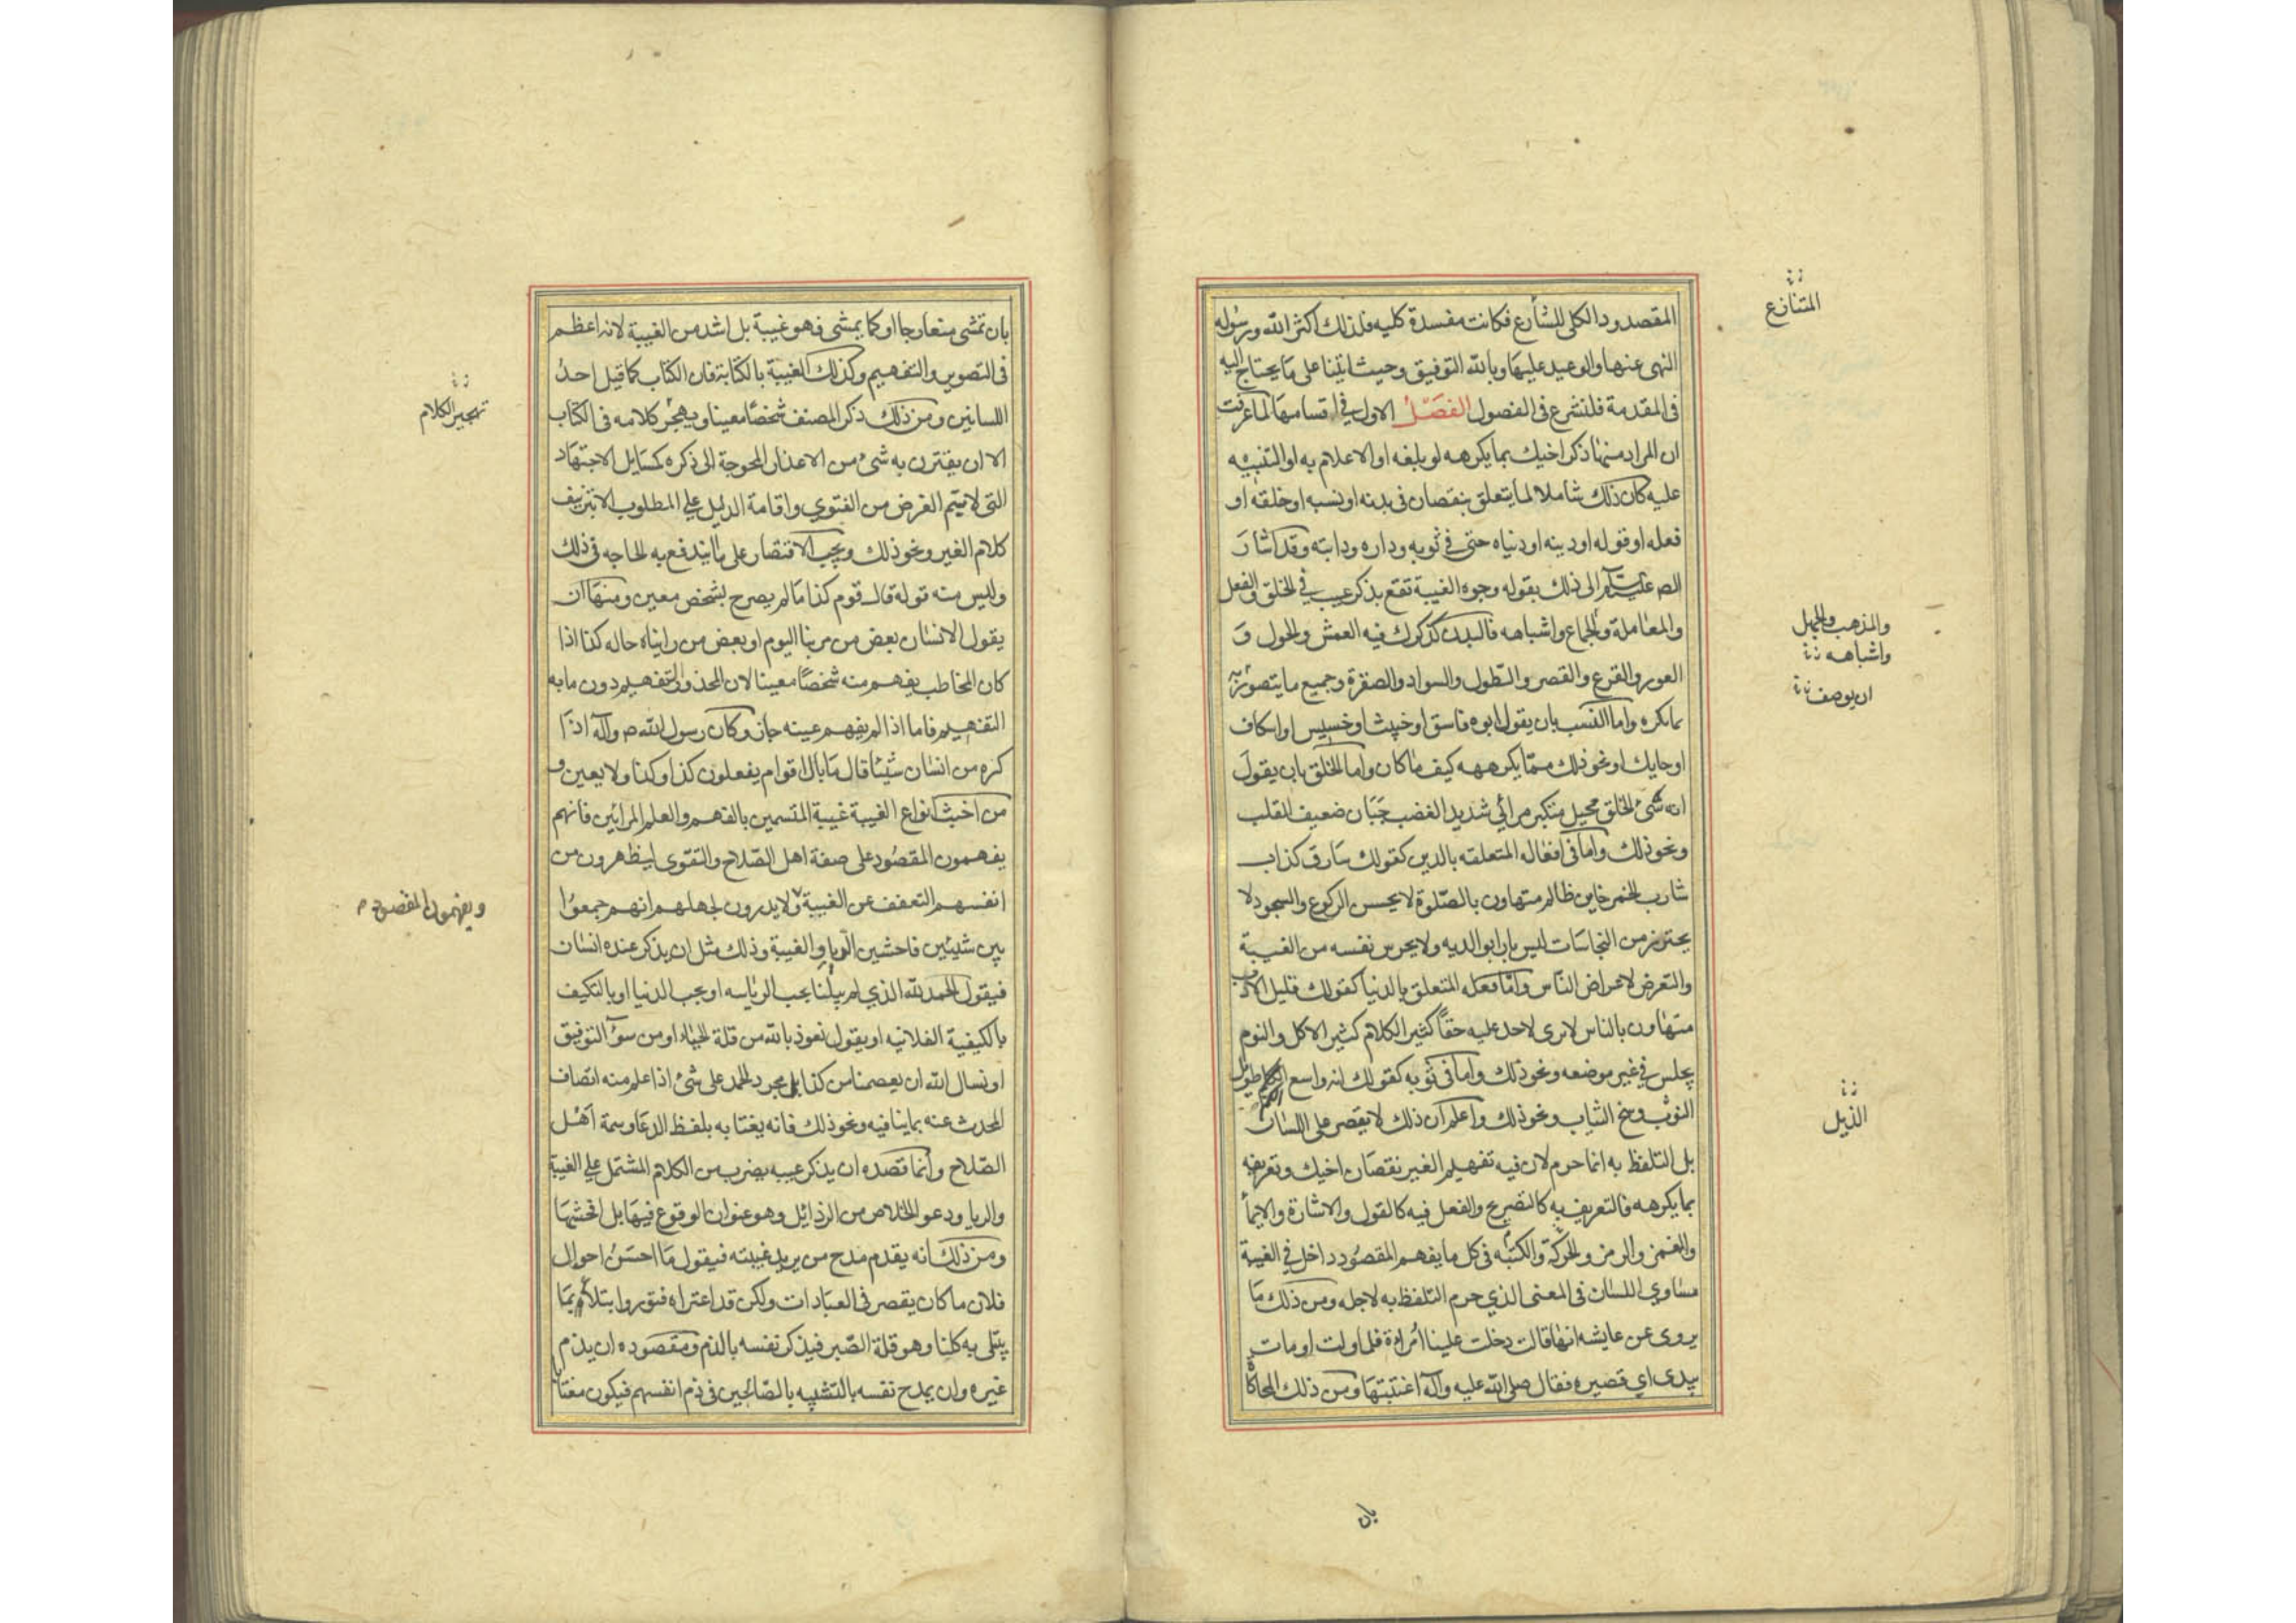 المقصود الكلى للشارع فكانت مفسدة كلية فلذلك اكثر الله ورسوله
النهى عنها والوعيد عليها وبالله التوفيق وحيث اتينا على ما يحتاج اليه
فى المقدمة فلنشرع فى الفصول الفصل الاول فى اقسامها لما عرفت
ان المراد منها ذكر اخيك بما يكرهه لو بلغه او الاعلام به او التنبيه
عليه كان ذلك شاملا لما يتعلق بنقصان فى بدنه او نسبه او خلقه او
فعله او قوله او دينه او دنياه حتى فى ثوبه وداره ودابته وقد اشار
الص الى ذلك بقوله وجوه الغيبة تقع بذكر عيب فى الخلق والفعل
والمعاملة والجماع واشباهه فالبدن كذكرك فيه العمش والحول و
العور والقرع والقصر والطول والسواد والصفرة وجميع ما يتصور به
مايكره واما النسب بان يقول ابوه فاسق او خبيث او خسيس او اسكاف
او حايك او نحو ذلك مما يكرهه كيف ما كان واما الخلق بان يقول
انه سئ الخلق بخيل متكبر مرائي شديد الغضب جبان ضعيف القلب
ونحو ذلك واما فى افعاله المتعلقه بالدين كقولك سارق كذاب
شارب الخمر خاين ظالم متهاون بالصلوة لا يحسن الركوع والسجود لا
يحترز من النجاسات ليس بارا بوالديه ولا يحرس نفسه من الغيبة
والتعرض لاعراض الناس واما فعله المتعلق بالدنيا كقولك قليل الادب
متهاون بالناس لا يرى لاحد عليه حقا كثير الكلام كثير الاكل والنوم
يجلس فى غير موضعه ونحو ذلك واما فى ثوبه كقولك انه واسع الكم طويل
الثوب وسخ الثياب ونحو ذلك واعلم ان ذلك لا يقصر على اللسان
بل التلفظ به انما حرم لان فيه تفهيم الغير نقصان اخيك وتعريفه
بما يكرهه فالتعريض به كالتصريح والفعل فيه كالقول والاشارة والايماء
والغمز والرمز والحركة والكتبه فى كل ما يفهم المقصود داخل فى الغيبة
مساوي اللسان فى المعنى الذي حرم التلفظ به لاجله ومن ذلك ما
يروى عن عايشه انها قالت دخلت علينا امراة فلما ولت اومات
بيدى اي قصيره فقال صلى الله عليه وآله اغتبتها ومن ذلك المحاكاة
بان
المتنازع
والمذهب والجهل
واشباهه
ان يوصف
الذيل
بان تمشى متعارجا او كما يمشى فهو غيبة بل اشد من الغيبة لانه اعظم
فى التصوير والتفهيم وكذلك الغيبة بالكتابة فان الكتاب كما قيل احد
اللسانين ومن ذلك ذكر المصنف شخصا معينا ويهجر كلامه فى الكتاب
الا ان يقترن به شئ من الاعذار المحوجة الى ذكره كمسايل الاجتهاد
التى لا يتم الغرض من الفتوي واقامة الدليل على المطلوب الا بتزييف
كلام الغير ونحو ذلك ويجب الاقتصار على ما يندفع به الحاجه فى ذلك
وليس منه قوله قال قوم كذا ما لم يصرح بشخص معين ومنها ان
يقول الانسان بعض من مر بنا اليوم او بعض من رايناه حاله كذا اذا
كان المخاطب يفهم منه شخصا معينا لان المحذور التفهيم دون ما به
التفهيم فاما اذا لم يفهم عينه جاز وكان رسول الله ص وآله اذا
كره من انسان شيئا قال ما بال اقوام يفعلون كذا وكذا ولا يعين و
من اخبث انواع الغيبة غيبة المتسمين بالفهم والعلم المرائين فانهم
يفهمون المقصود على صفة اهل الصلاح والتقوى ليظهرون من
انفسهم التعفف عن الغيبة ولا يدرون لجهلهم انهم جمعوا
بين شيئين فاحشين الريا والغيبة وذلك مثل ان يذكر عنده انسان
فيقول الحمد لله الذي لم يبلنا بحب الرياسه او بحب الدنيا او بالتكيف
بالكيفية الفلانيه او يقول نعوذ بالله من قلة الحياء او من سوء التوفيق
او نسال الله ان يعصمنا من كذا بل مجرد الحمد على شئ اذا علم منه اتصاف
المحدث عنه بما ينافيه ونحو ذلك فانه يغتابه بلفظ الدعا وسمة اهل
الصلاح وانما قصده ان يذكر عيبه بضرب من الكلام المشتمل على الغيبة
والريا ودعو الخلاص من الرذائل وهو عنوان الوقوع فيها بل افحشها
ومن ذلك انه يقدم مدح من يريد غيبته فيقول ما احسن احوال
فلان ما كان يقصر فى العبادات ولكن قد اعتراه فتور وابتلاء بما
يبتلى به كلنا وهو قلة الصبر فيذكر نفسه بالذم ومقصوده ان يذم
غيره وان يمدح نفسه بالتشبيه بالصالحين فى ذم انفسهم فيكون مغتابا
تهجير الكلام
ويفهمون المقصود